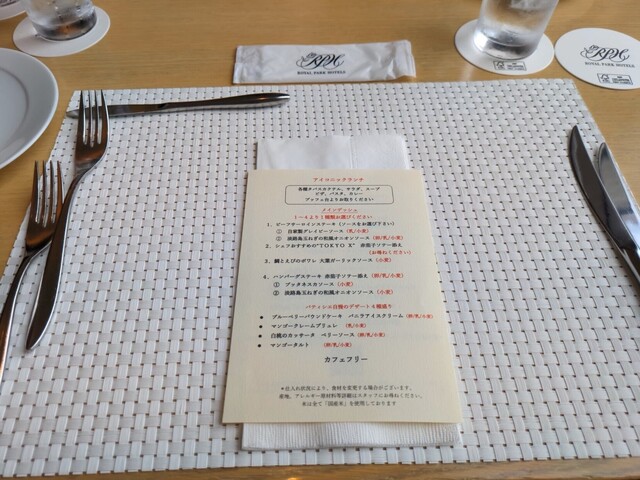 RPH
ROYAL PARK HOTELS
アイコニックランチ
各種タパスカクテル、サラダ、スープ
ピザ、パスタ、カレー
ブッフェ台よりお取りください
メインディッシュ
1～4より1種類お選びください
1、ビーフサーロインステーキ（ソースをお選び下さい）
① 自家製グレイビーソース（乳/小麦）
② 淡路島玉ねぎの和風オニオンソース（卵/乳/小麦）
2、シェフおすすめの"TOKYO X" 赤茄子ソテー添え
（お尋ねください）
3、鯛とえびのポワレ 大葉ガーリックソース（小麦）
4、ハンバーグステーキ 赤茄子ソテー添え（卵/乳/小麦）
① プッタネスカソース（小麦）
② 淡路島玉ねぎの和風オニオンソース（小麦）
パティシエ自慢のデザート4種盛り
● ブルーベリーパウンドケーキ バニラアイスクリーム（卵/乳/小麦）
● マンゴークレームブリュレ （乳/小麦）
● 白桃のカッサータ ベリーソース（卵/乳/小麦）
● マンゴータルト （卵/乳/小麦）
カフェフリー
＊仕入れ状況により、食材を変更する場合がございます。
産地、アレルギー原材料等詳細はスタッフにお尋ねください。
米は全て「国産米」を使用しております
RPH
ROYAL PARK HOTELS